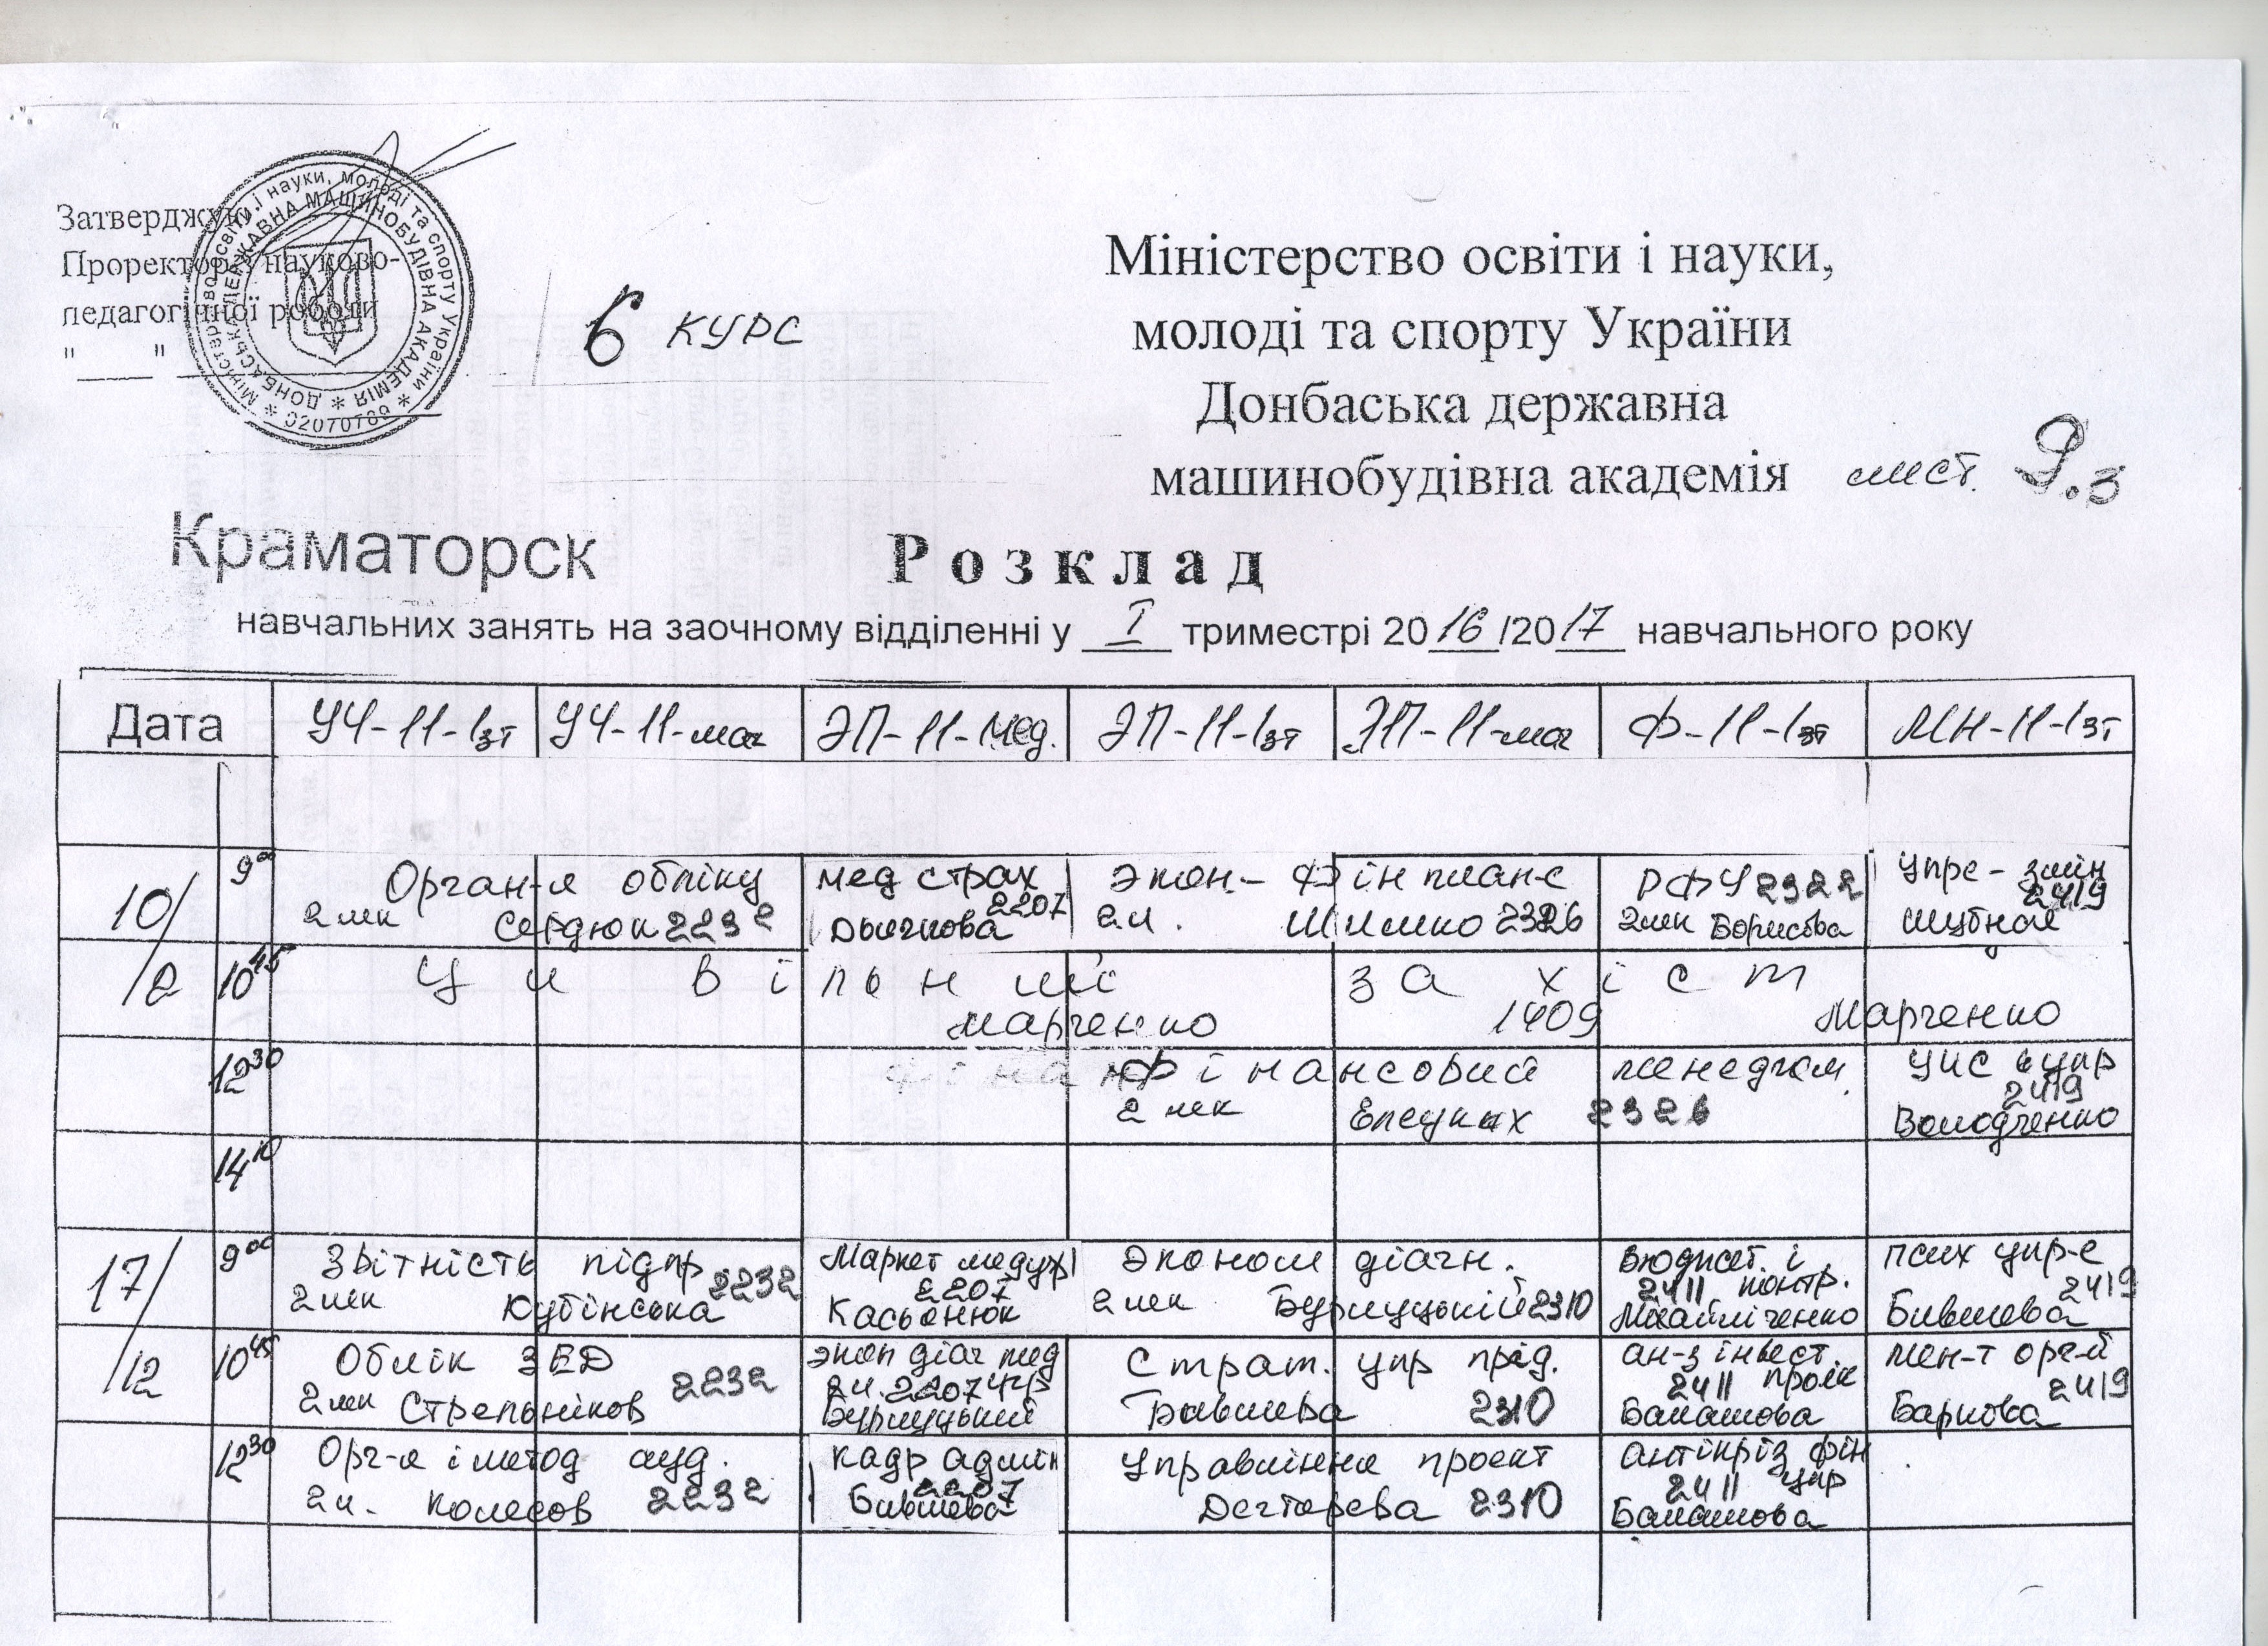 Затверджую
Проректор з науково-
педагогічної роботи
" "
Міністерство освіти і науки, молоді та спорту України
ДОНБАСЬКА ДЕРЖАВНА МАШИНОБУДІВНА АКАДЕМІЯ
02070789
6 курс
Міністерство освіти і науки,
молоді та спорту України
Донбаська державна
машинобудівна академія
лист. 9.3
Краматорск
Розклад
навчальних занять на заочному відділенні у I триместрі 2016/2017 навчального року
Дата УЧ-11-1зт УЧ-11-маг ЭП-11-Мед. ЭП-11-1зт ЭП-11-маг Ф-11-1зт МН-11-1зт
10/ 9 00 Орган-я обліку мед страх Экон- Фін план-е РФУ 2322 Упре- змін
2лек Сердюк 2232 2207 Дьячкова 2л. Шимко 2326 2лек Борисова 2419
/2 10 45 Цивільний захіст
Марченко 1409 Марченко
12 30 Фінансовий менедж. УИС 2419
2 лек Елецких 2326 Володченко
14 10
17/ 9 00 Звітність підпр 2232 Маркет Эконом діагн. Бюджет. і псих упр-е
2лек Кубінська 2207 2лек Бурлуцький 2310 2411 контр. 2419
Касьянюк Михайліченко Бившева
/12 10 45 Облік ЗЕД 2232 экон діаг мед Страт. упр прід. ан-з інвест. мен-т орг-й
2лек Стрельніков 2л. 2207 упр Бившева 2310 2411 2419
Бурлуцький Балашова Баркова
12 30 Орг-я і метод ауд. кадр адмін Управління проект антікріз фін
2л. Колесов 2232 2207 Дегтярева 2310 2411 упр
Бившева Балашова